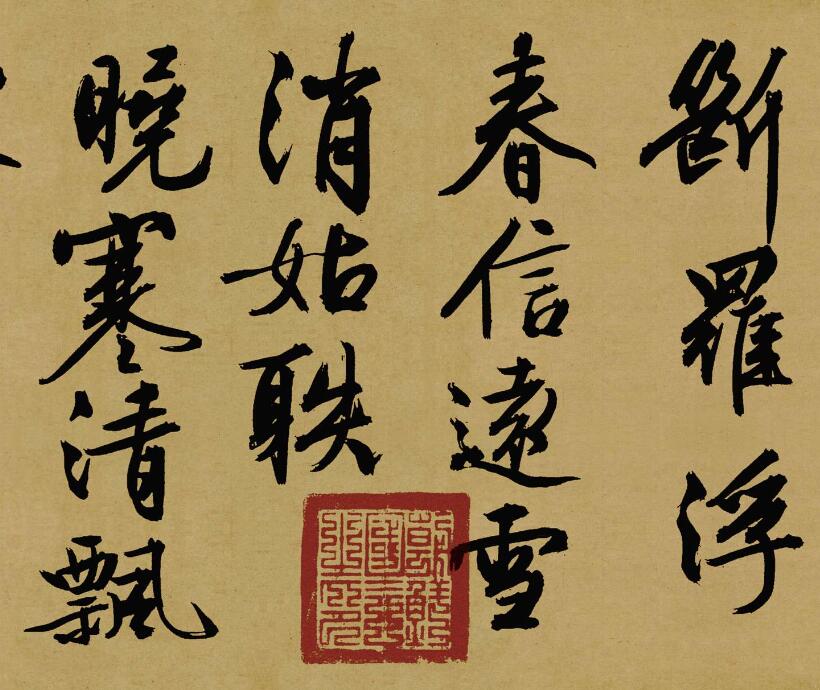 斷羅浮
春信遠雪
消姑䠶
曉寒清飄